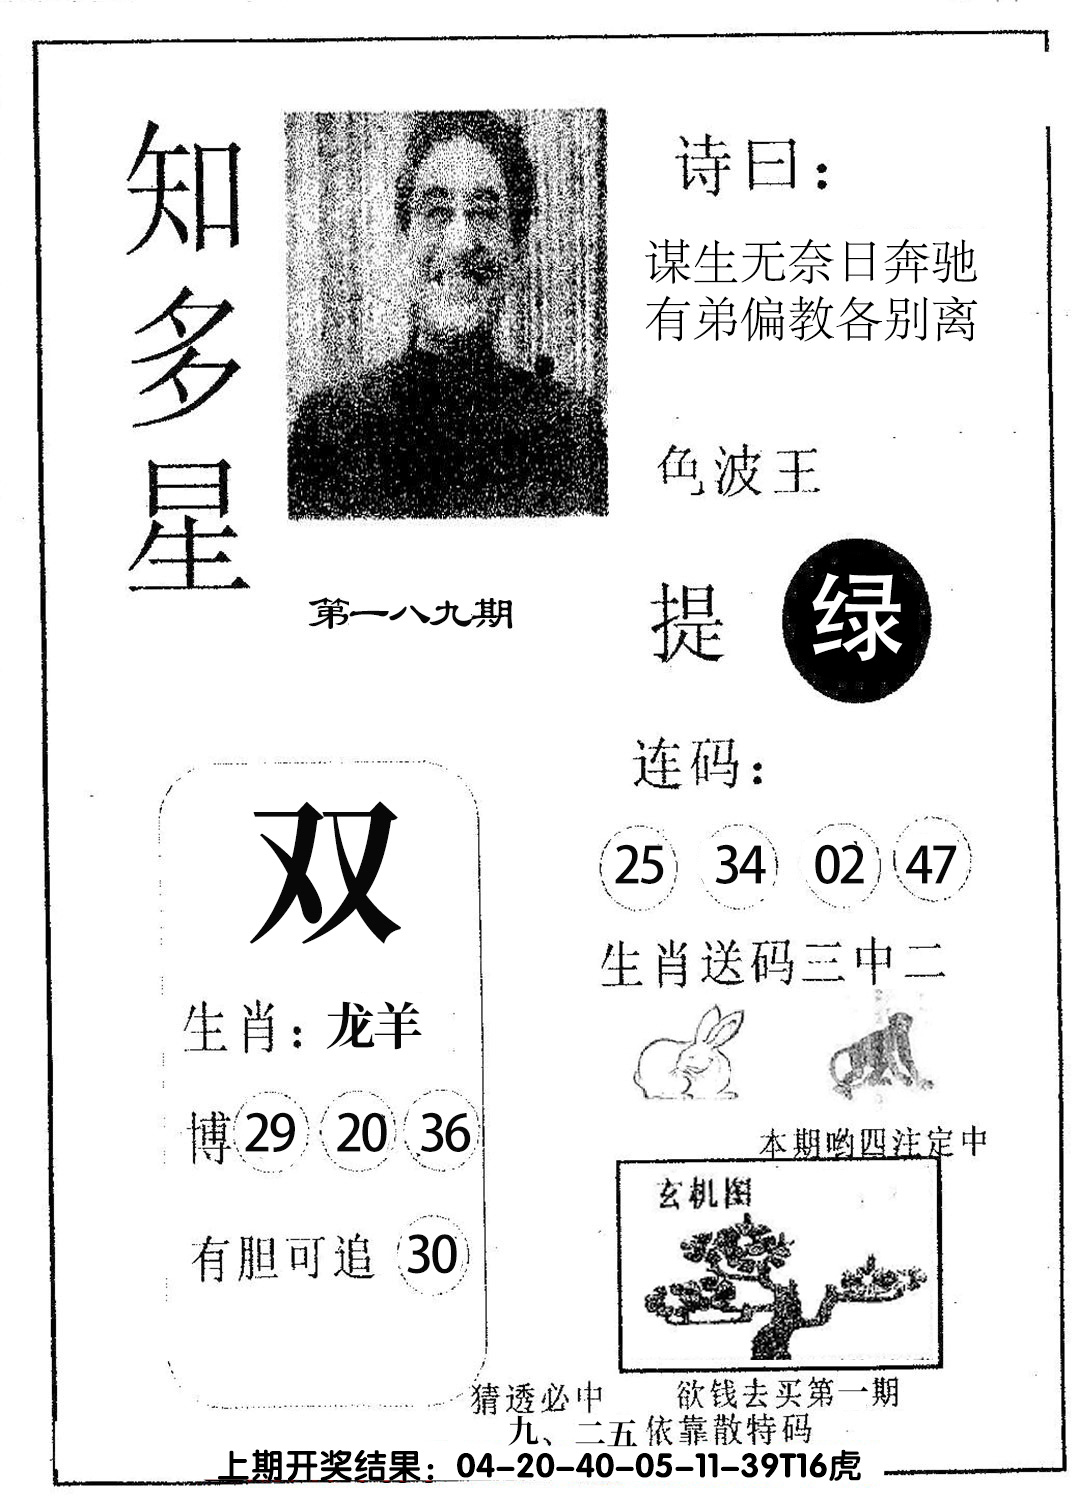 知多星
诗曰：
谋生无奈日奔驰
有弟偏教各别离
色波王
第一八九期
提 绿
连码：
25 34 02 47
双
生肖送码三中二
生肖：龙羊
博 29 20 36
本期哟四注定中
玄机图
有胆可追 30
猜透必中 欲钱去买第一期
九、二五依靠散特码
上期开奖结果：04-20-40-05-11-39T16虎